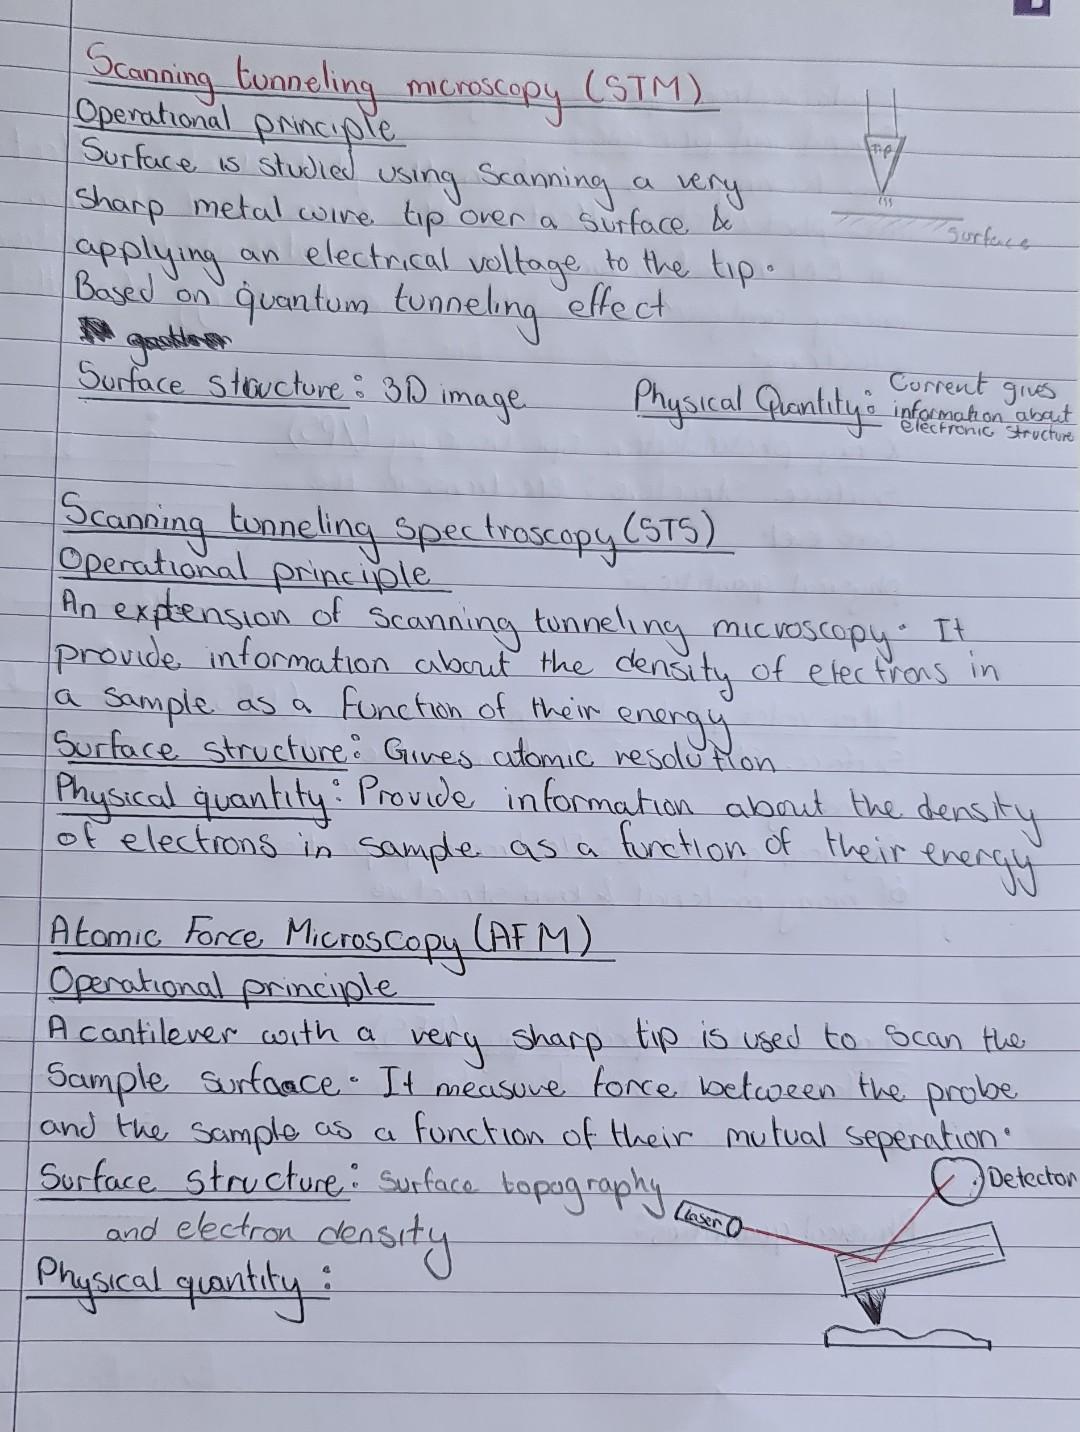 Scanning tunneling microscopy (STM)
Operational principle
Surface is studied using Scanning a very
Sharp metal wire tip over a surface &
applying an electrical voltage to the tip.
Based on quantum tunneling effect
Tip
surface
Surface structure: 3D image
Physical Quantity: Current gives
information about
electronic structure
Scanning tunneling spectroscopy (STS)
Operational principle
An extension of scanning tunneling microscopy. It
provide information about the density of electrons in
a sample as a function of their energy
Surface structure: Gives atomic resolution
Physical quantity: Provide information about the density
of electrons in sample as a function of their energy
Atomic Force Microscopy (AFM)
Operational principle
A cantilever with a very sharp tip is used to scan the
Sample surface. It measure force between the probe
and the sample as a function of their mutual seperation.
Surface structure: surface topography
and electron density
Laser
Detector
Physical quantity: